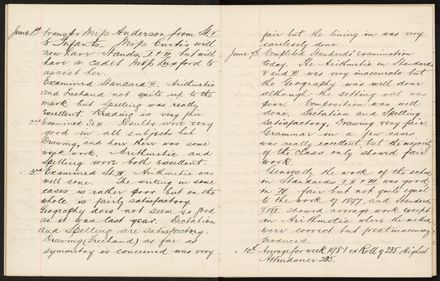 June 1st transfer Miss Anderson from St. I
to Infants. Miss Curtis will
now have Stands. I & II but will
have a cadet Miss Luxford to
assist her.
Examined Standard II. Arithmetic
and Freehand not quite up to the
mark but Spelling was really
excellent. Reading is very fair
2nd Examined St. Results were very
good in all subjects but
Drawing, and here there was some
weak work. Arithmetic and
Spelling were both excellent.
3rd Examined St. IV. Arithmetic was
well done. The writing in some
cases is rather poor but on the
whole is fairly satisfactory.
Geography does not seem so good
as it was last year. Dictation
and Spelling are satisfactory.
Drawing (Freehand) as far as
symmetry is concerned was very
fair but the lining in was very
carelessly done.
June 7th Completed Standards' Examination
today. The Arithmetic in Standards
V and VI was very inaccurate but
the Geography was well done
although the setting out was
poor. Composition was well
done, Dictation and Spelling
Satisfactory, Drawing very fair.
Grammar in a few cases
was really excellent, but the majority
of the class only showed fair
work.
Generally the work of the school
in Standards I II & III was good,
in IV fair but not quite equal
to the work of 1897, and Standards
V & VI showed average work except
in Arithmetic where the methods
were correct but great inaccuracy
produced.
10th Average for week 198.1 ex Roll of 225 Highest
Attendance 205.